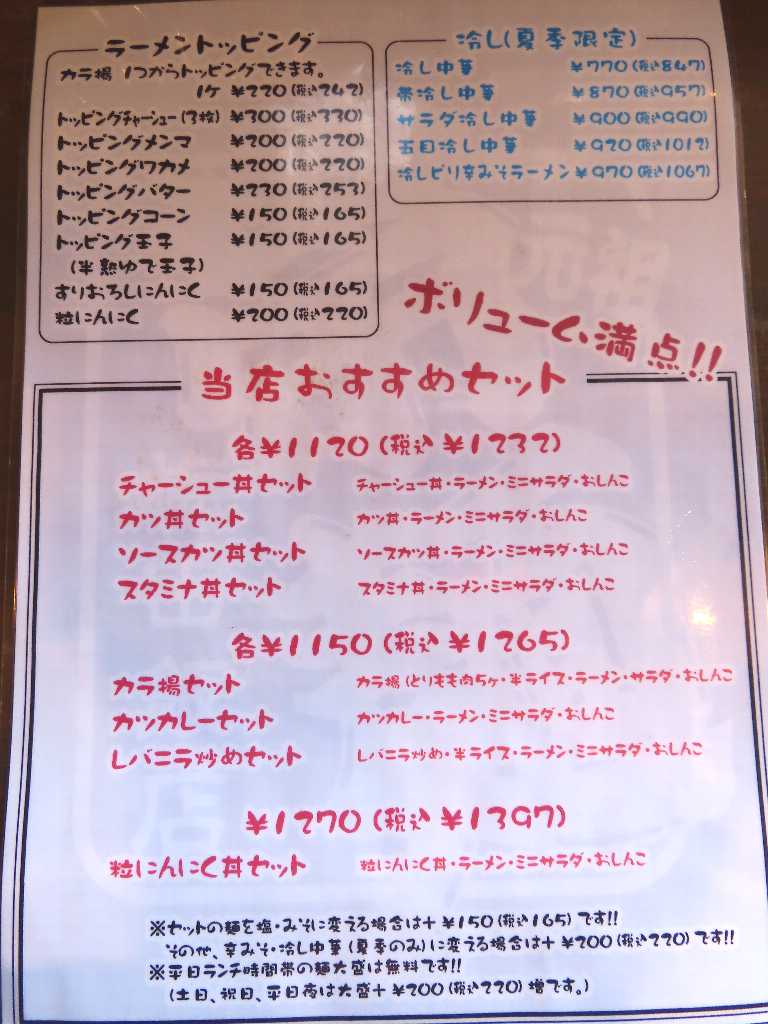 ラーメントッピング
カラ揚 1つからトッピングできます。
1ケ ¥220(税込242)
トッピングチャーシュー(3枚) ¥300(税込330)
トッピングメンマ ¥200(税込220)
トッピングワカメ ¥200(税込220)
トッピングバター ¥230(税込253)
トッピングコーン ¥150(税込165)
トッピング玉子 ¥150(税込165)
(半熟ゆで玉子)
すりおろしにんにく ¥150(税込165)
粒にんにく ¥200(税込220)
冷し(夏季限定)
冷し中華 ¥770(税込847)
冷し中華 ¥870(税込957)
サラダ冷し中華 ¥900(税込990)
五目冷し中華 ¥920(税込1012)
冷しピリ辛みそラーメン ¥970(税込1067)
ボリューム満点!!
当店おすすめセット
各¥1120(税込¥1232)
チャーシュー丼セット チャーシュー丼・ラーメン・ミニサラダ・おしんこ
カツ丼セット カツ丼・ラーメン・ミニサラダ・おしんこ
ソースカツ丼セット ソースカツ丼・ラーメン・ミニサラダ・おしんこ
スタミナ丼セット スタミナ丼・ラーメン・ミニサラダ・おしんこ
各¥1150(税込¥1265)
カラ揚セット カラ揚(とりもも肉5ケ・半ライス・ラーメン・サラダ・おしんこ
カツカレーセット カツカレー・ラーメン・ミニサラダ・おしんこ
レバニラ炒めセット レバニラ炒め・半ライス・ラーメン・ミニサラダ・おしんこ
¥1270(税込¥1397)
粒にんにく丼セット 粒にんにく丼・ラーメン・ミニサラダ・おしんこ
※セットの麺を塩・みそに変える場合は+¥150(税込165)です!!
その他、辛みそ・冷し中華(夏季のみ)に変える場合は+¥200(税込220)です!!
※平日ランチ時間帯の麺大盛は無料です!!
(土日、祝日、平日夜は大盛+¥200(税込220)増です。)